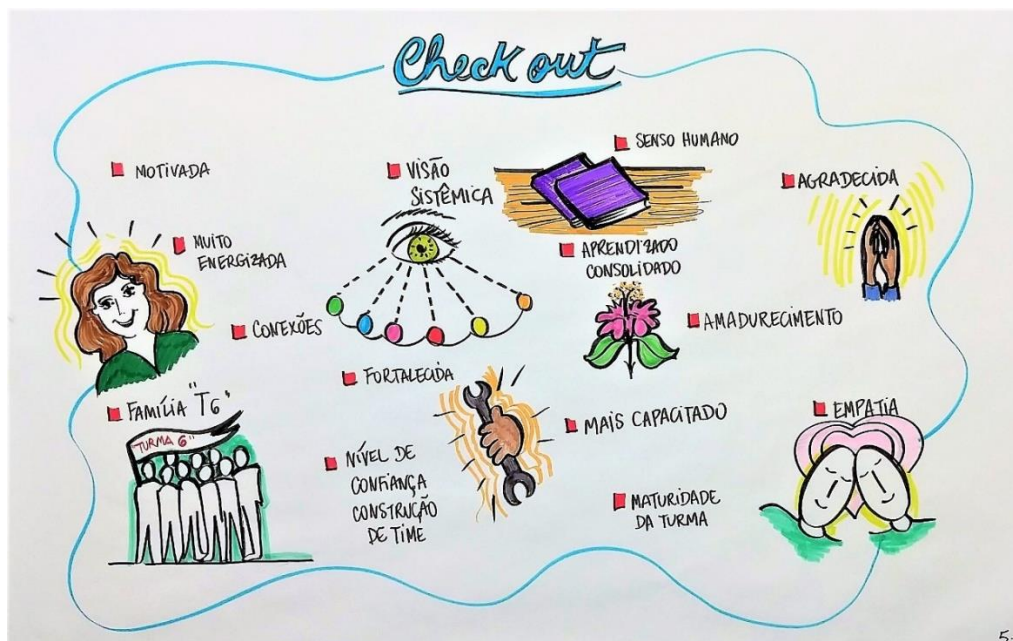 Check out
MOTIVADA
MUITO
ENERGIZADA
CONEXÕES
FAMÍLIA "T6"
TURMA 6"
VISÃO
SISTÊMICA
FORTALECIDA
NÍVEL DE
CONFIANÇA
CONSTRUÇÃO
DE TIME
SENSO HUMANO
APRENDIZADO
CONSOLIDADO
AMADURECIMENTO
MAIS CAPACITADO
MATURIDADE
DA TURMA
AGRADECIDA
EMPATIA
5.